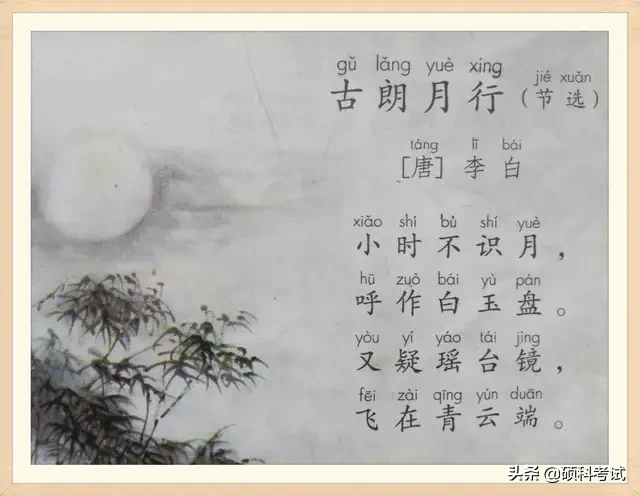 gǔ lǎng yuè xíng jié xuǎn
古朗月行（节选）
táng lǐ bái
[唐] 李白
xiǎo shí bù shí yuè
小时不识月，
hū zuò bái yù pán
呼作白玉盘。
yòu yí yáo tái jìng
又疑瑶台镜，
fēi zài qīng yún duān
飞在青云端。
头条 @硕科考试